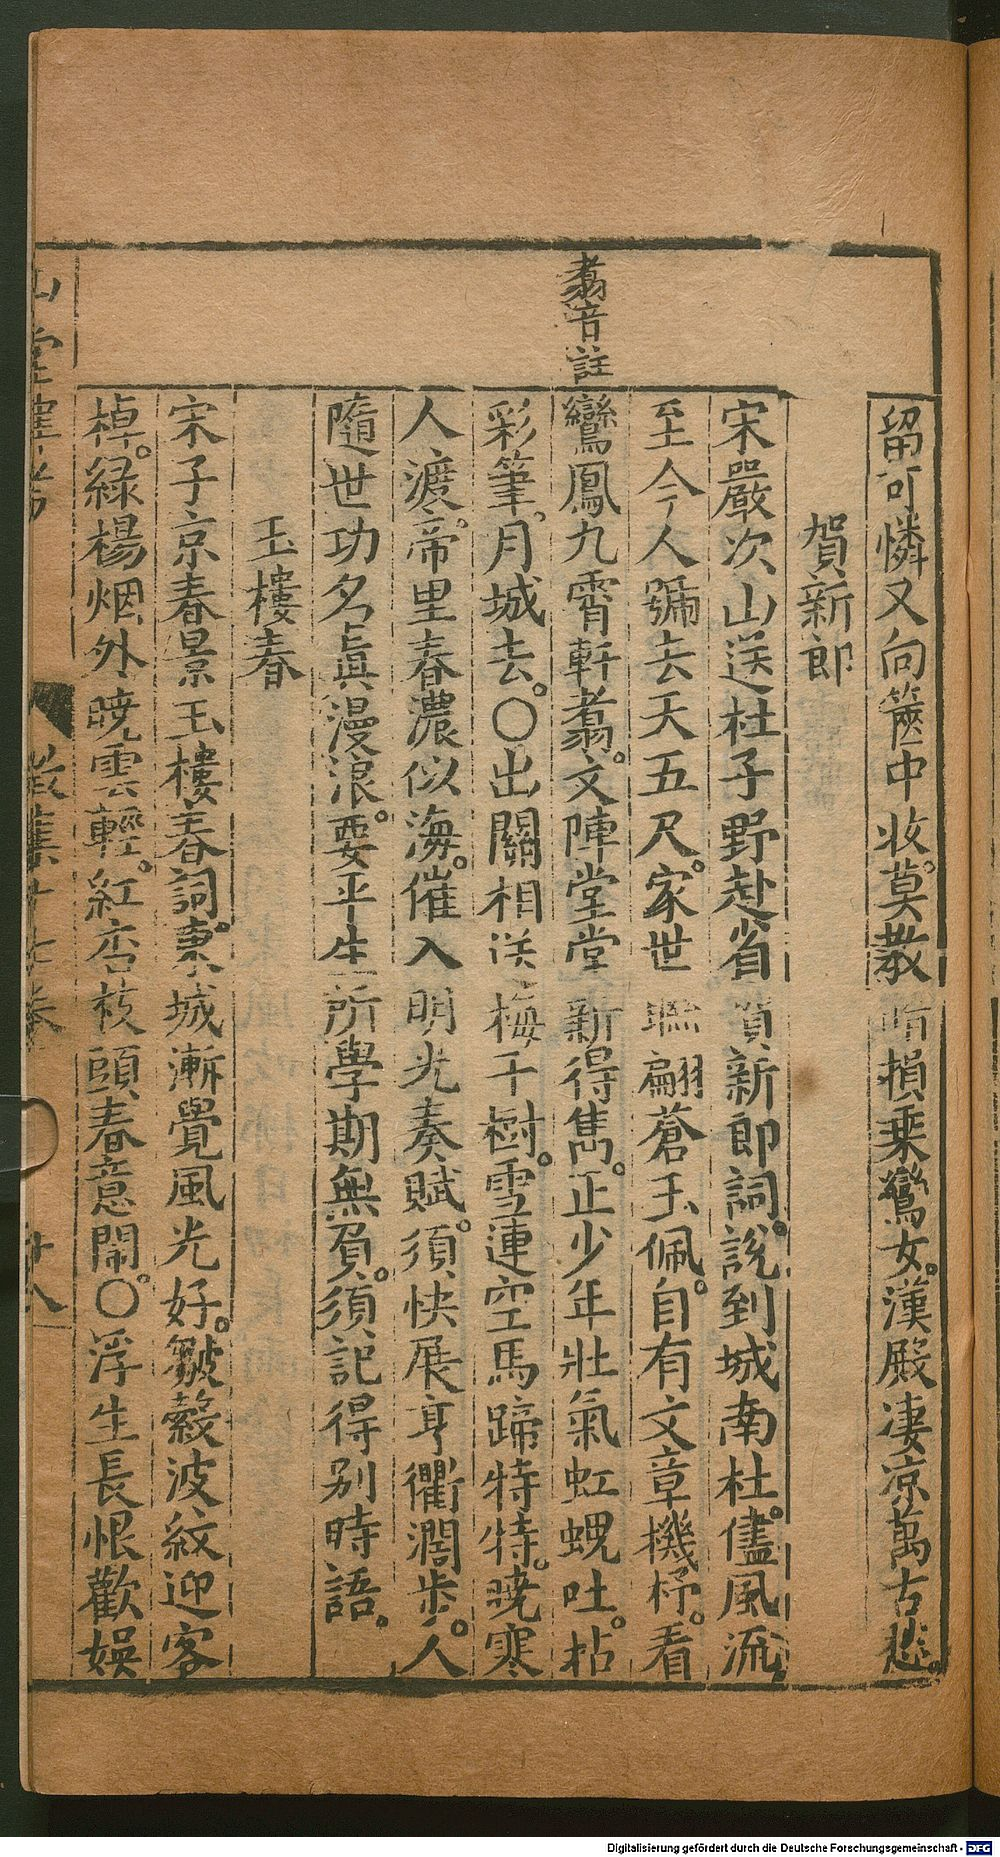 留可憐又向篋中收。莫教損乗鸞女。漢殿凄凉萬古愁。
賀新郎
宋嚴次山送杜子野赴省賀新郎詞。說到城南杜。儘風流
至今人號去天五尺。家世聯翩蒼玉佩。自有文章機杼。看
翥音註
鸞鳳九霄軒翥。文陣堂堂新得雋。正少年壯氣虹蜺吐。拈
彩筆。月城去。〇出關相送梅千樹。雪連空馬蹄特特。曉寒
人渡。帝里春濃似海。催入明光奏賦。須快展亨衢濶步。人
隨世功名眞漫浪。要平生所學期無負。須記得别時語。
玉樓春
宋子京春景玉樓春詞。東城漸覺風光好。皺縠波紋迎客
棹。緑楊烟外曉雲輕。紅杏枝頭春意閙。〇浮生長恨歡娛
山堂肆考
卷
廿八
Digitalisierung gefördert durch die Deutsche Forschungsgemeinschaft - DFG